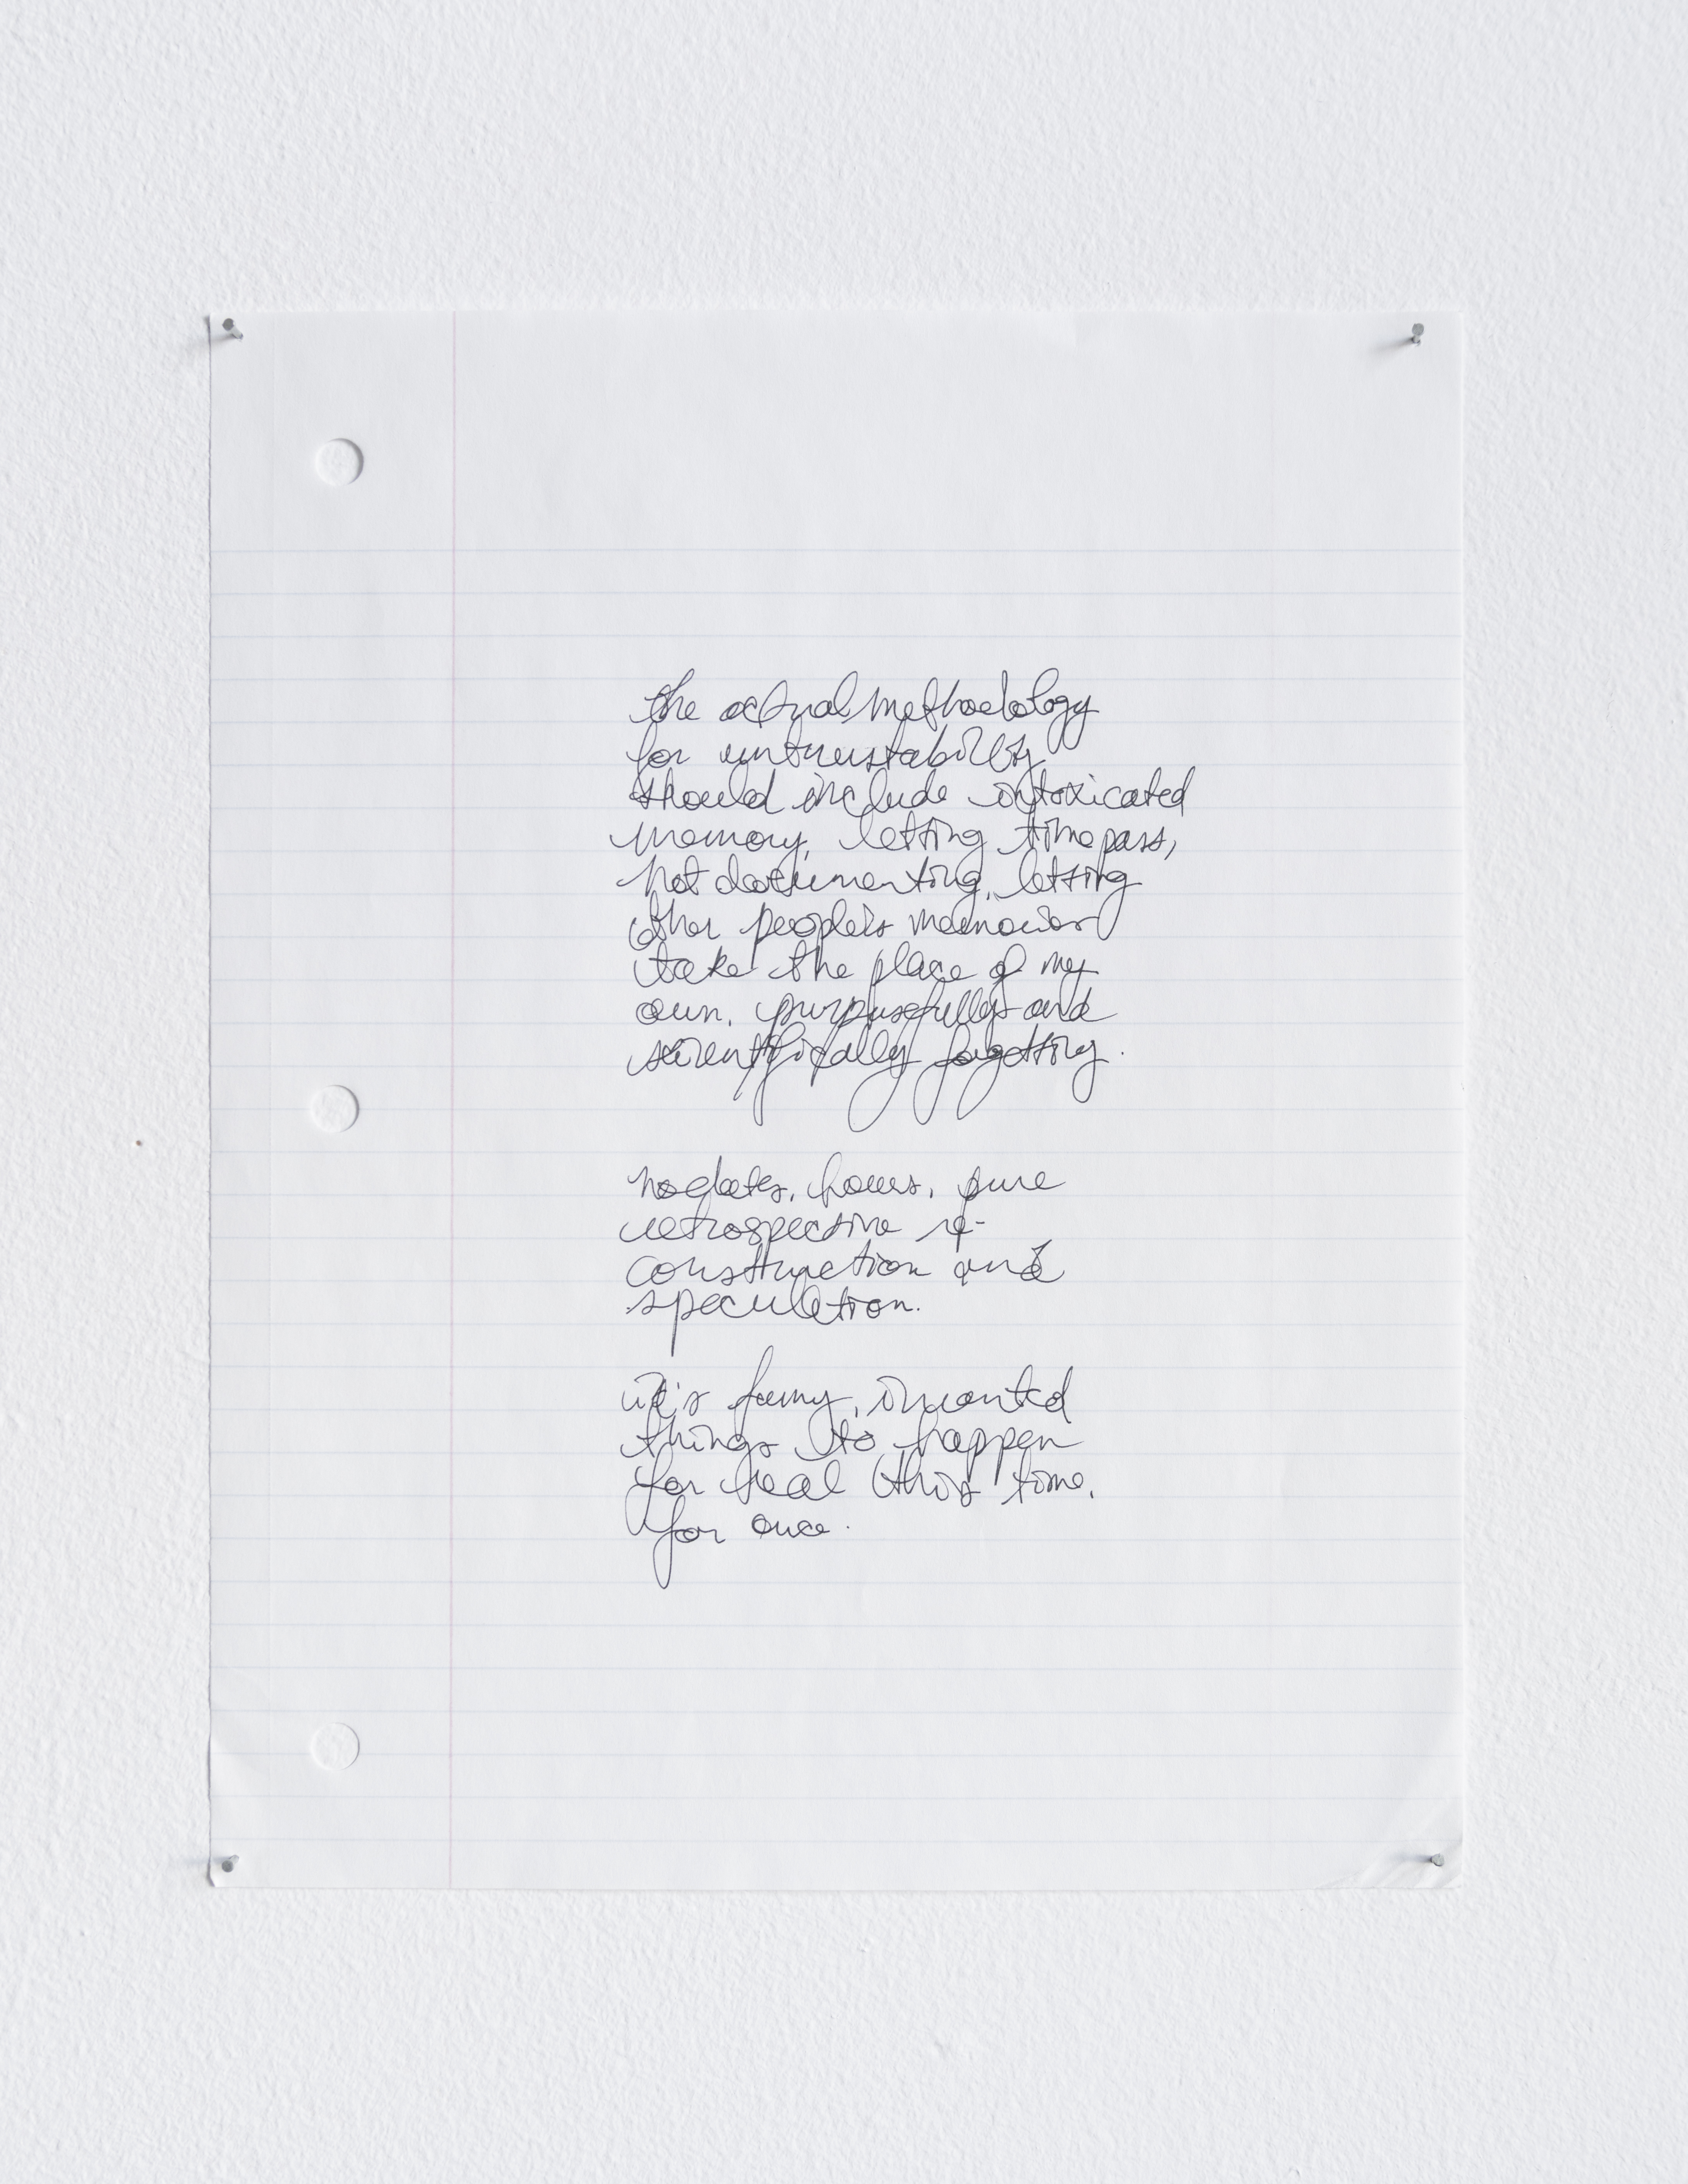 the actual methodology
for untrustability
should include intoxicated
memory, letting time pass,
not documenting, letting
other people's memories
take the place of my
own. purpusefully and
scientifically forgetting.
no dates, hours, pure
retrospective re-
construction and
speculation.
it's funny, i wanted
things to happen
for real this time,
for once.